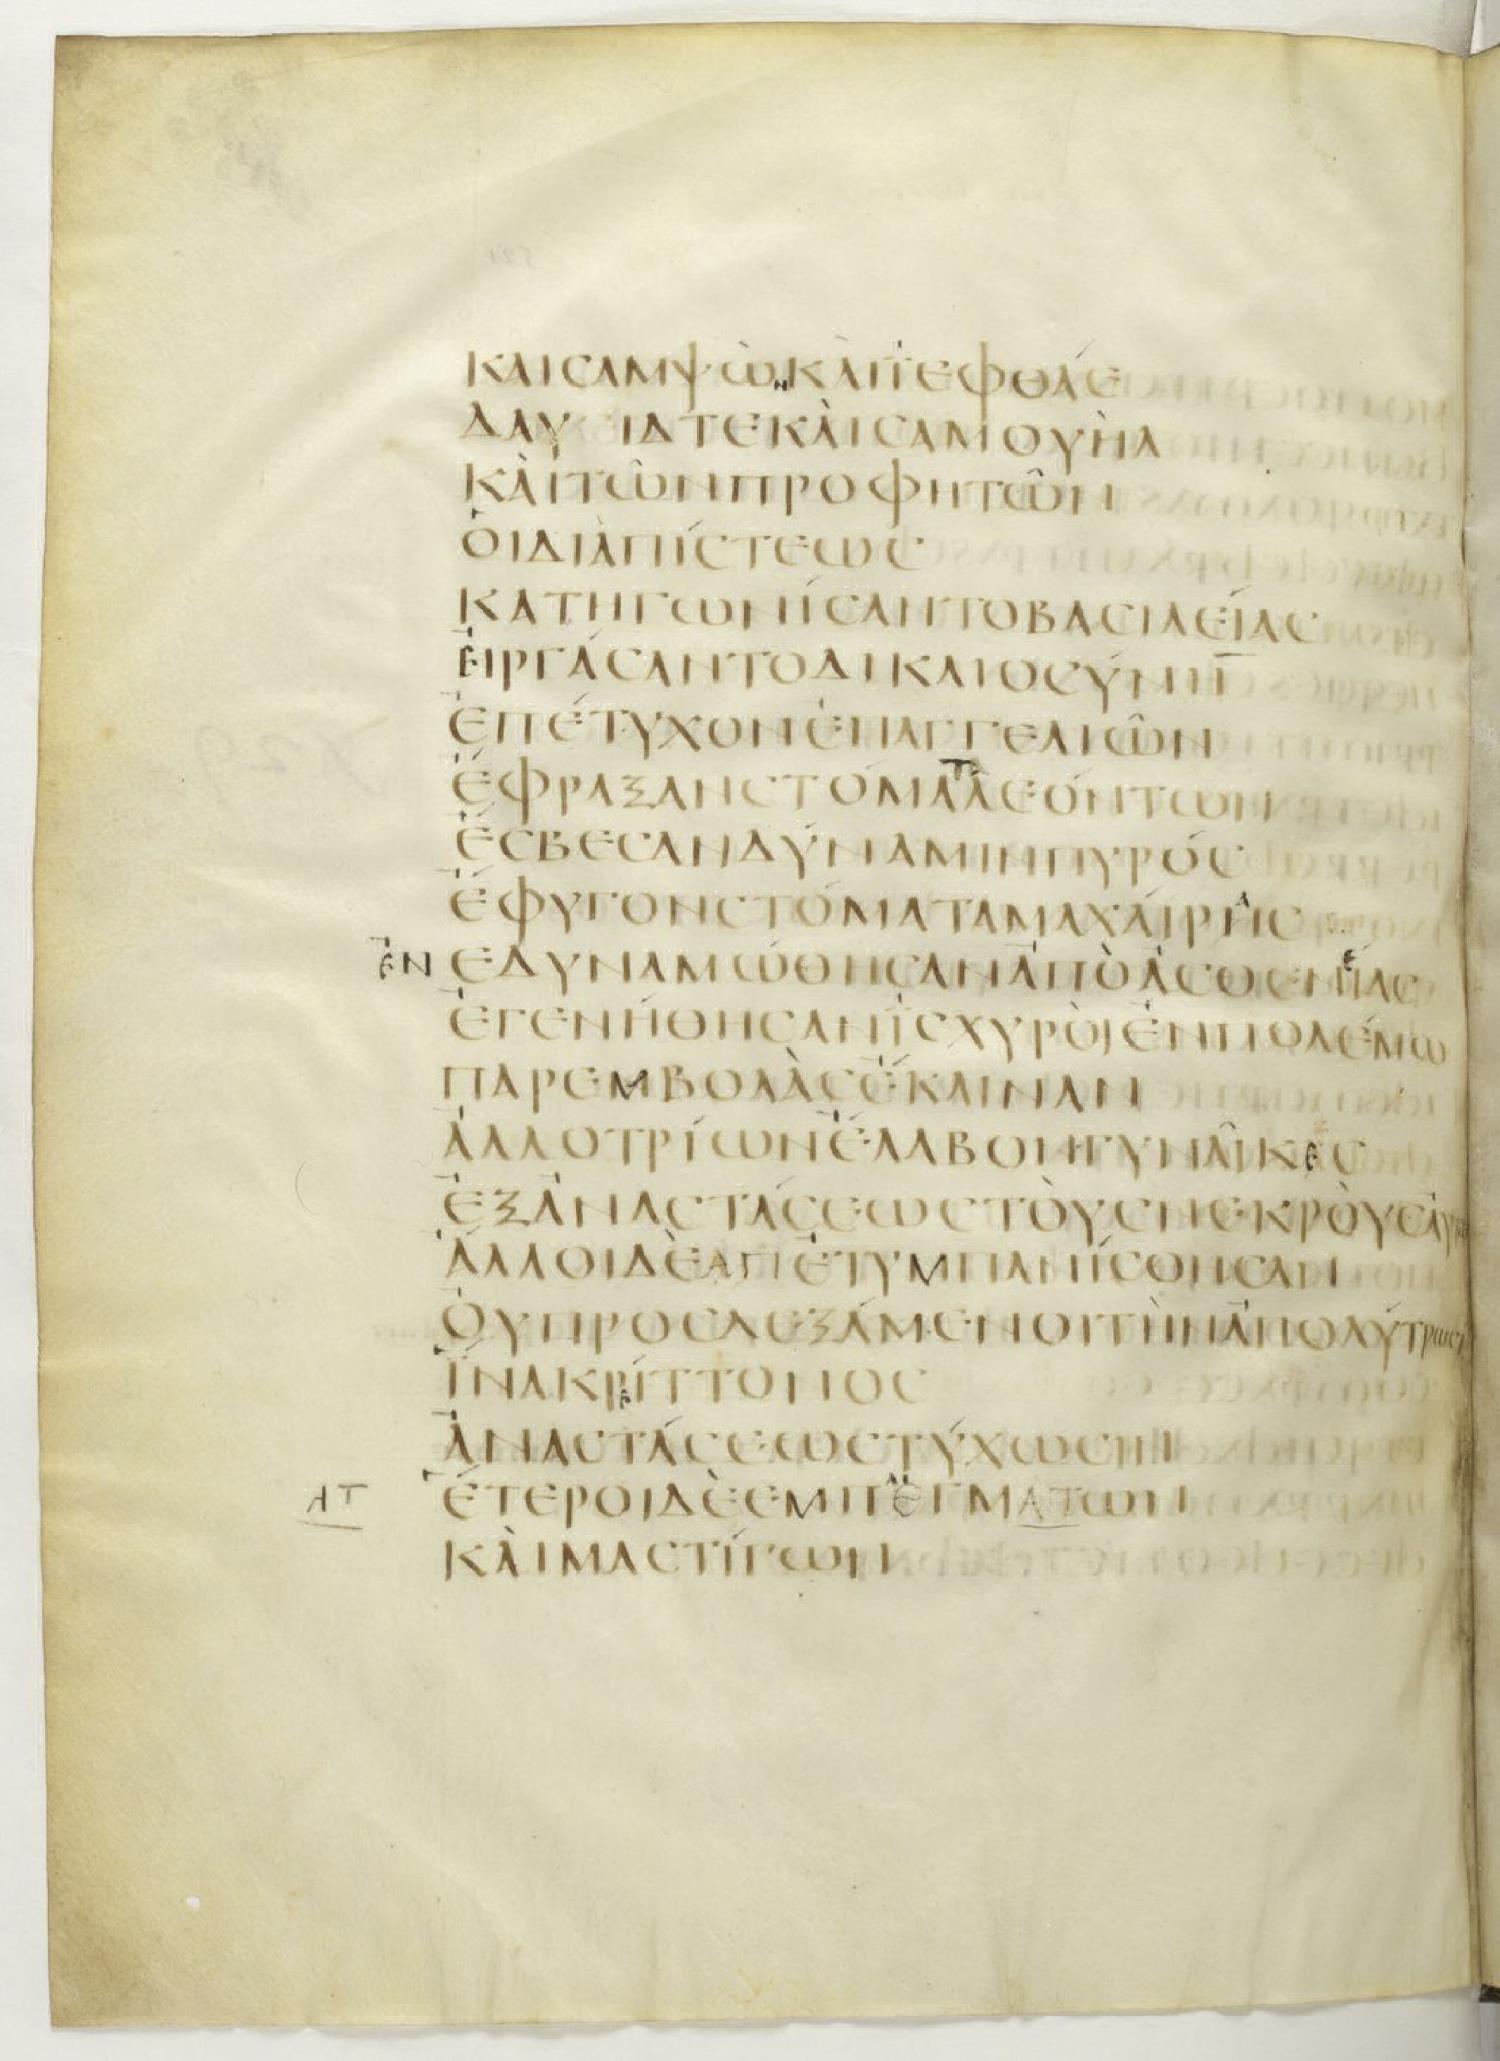 ΚΑΙ ϹΑΜΨὼΝ ΚᾺΙ ἸΕΦΘΆΕ
ΔΑΥΙΔ ΤΕ ΚᾺΙ ϹΑΜΟΥῊΛ
ΚᾺΙ ΤΩ͂Ν ΠΡΟΦΗΤΩ͂Ν
ὉΙ ΔΙᾺ ΠΊϹΤΕΩϹ
ΚΑΤΗΓΩΝΊϹΑΝΤΟ ΒΑϹΙΛΕΊΑϹ
ἘΙΡΓΆϹΑΝΤΟ ΔΙΚΑΙΟϹΎΝΗ
ἘΠΈΤΥΧΟΝ ἘΠΑΓΓΕΛΙΩ͂Ν
ἜΦΡΑΞΑΝ ϹΤΌΜΑΤΑ ΛΕΌΝΤΩΝ
ἜϹΒΕϹΑΝ ΔΎΝΑΜΙΝ ΠΥΡΌϹ
ἜΦΥΓΟΝ ϹΤΌΜΑΤΑ ΜΑΧΆΙΡΗϹ
ἘΝΕΔΥΝΑΜΏΘΗϹΑΝ ἈΠῸ ἈϹΘΕΝΕΊΑϹ
ἘΓΕΝΉΘΗϹΑΝ ἸϹΧΥΡῸΙ ἘΝ ΠΟΛΈΜΩ
ΠΑΡΕΜΒΟΛᾺϹ ἜΚΛΙΝΑΝ
ἈΛΛΟΤΡΊΩΝ ἜΛΑΒΟΝ ΓΥΝΑΙ͂ΚΕϹ
ἘΞ ἈΝΑϹΤΆϹΕΩϹ ΤῸΥϹ ΝΕΚΡῸΥϹ ἈΥΤΩ
ἌΛΛΟΙ ΔῈ ΑΠΕΤΥΜΠΑΝΊϹΘΗϹΑΝ
ὈΥ ΠΡΟϹΔΕΞΆΜΕΝΟΙ ΤῊΝ ἈΠΟΛΎΤΡΩϹΙ
ἽΝΑ ΚΡΕΊΤΤΟΝΟϹ
ἈΝΑϹΤΆϹΕΩϹ ΤΎΧΩϹΙΝ
ἝΤΕΡΟΙ ΔῈ ΕΜΠΕΓΜΑΤΩΝ
ΑΤ
ΚᾺΙ ΜΑϹΤΊΓΩΝ